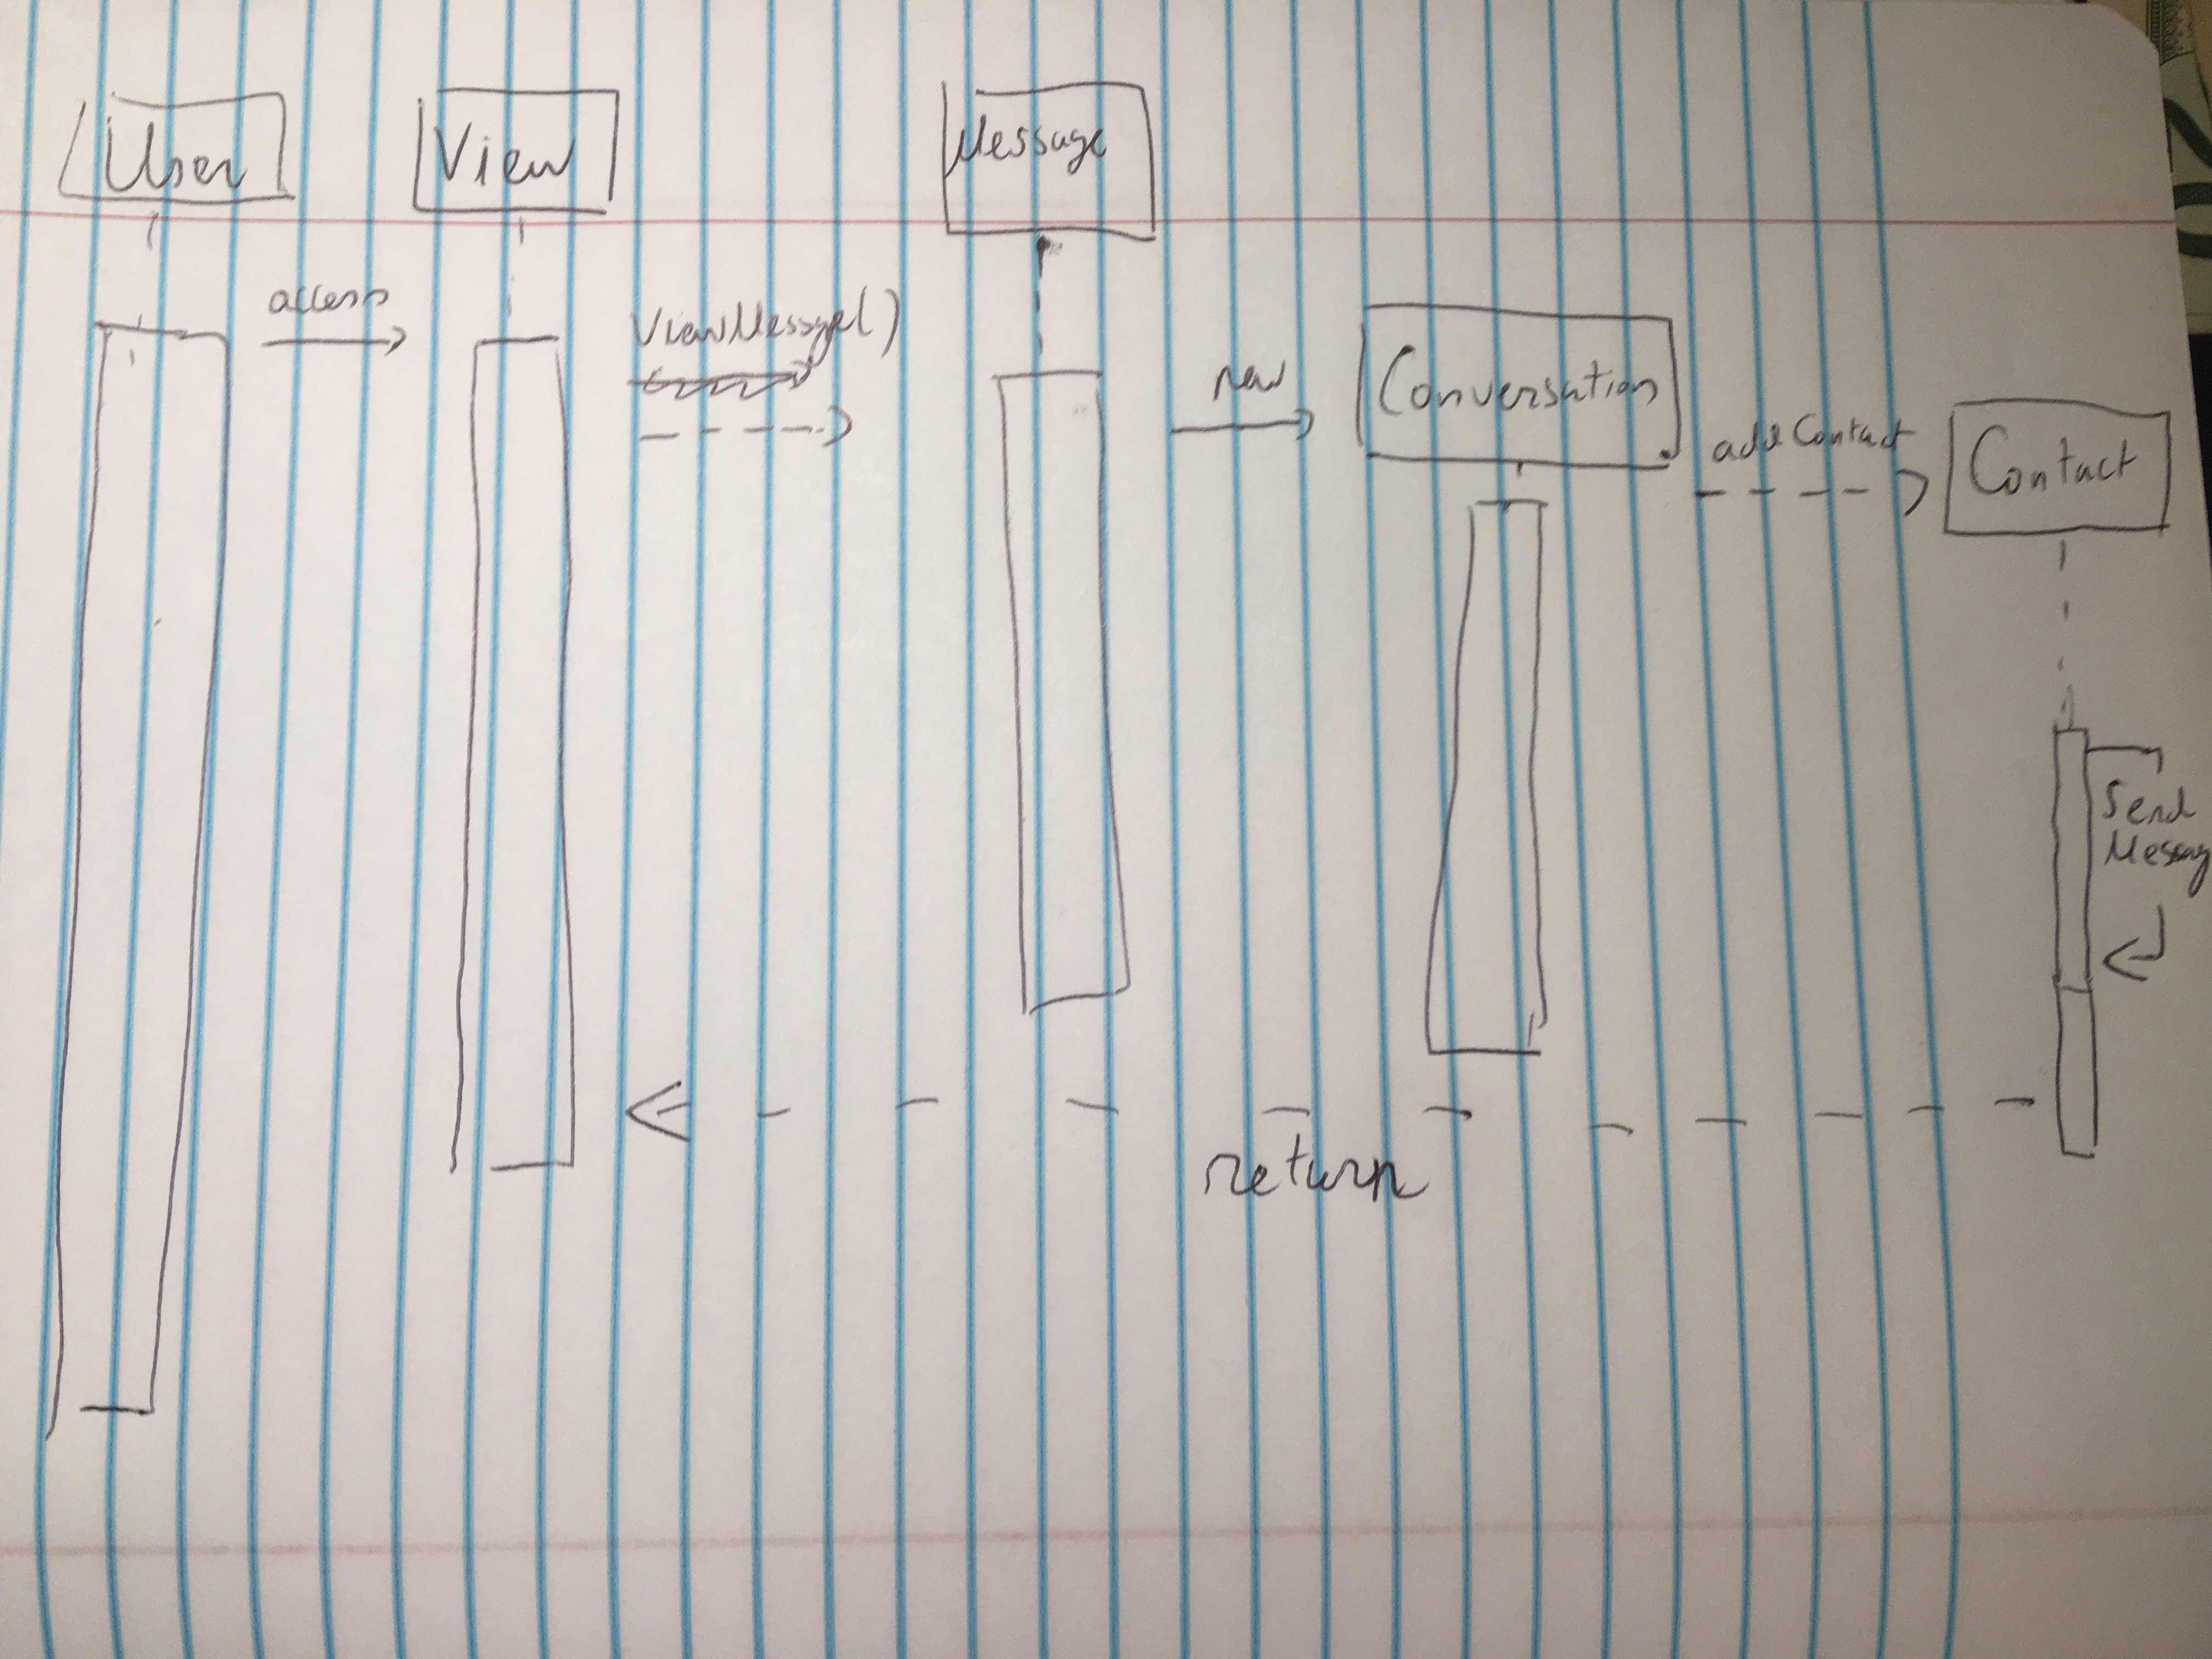 User
View
Message
access
ViewMessage()
new
Conversation
addContact
Contact
Send
Messag
return